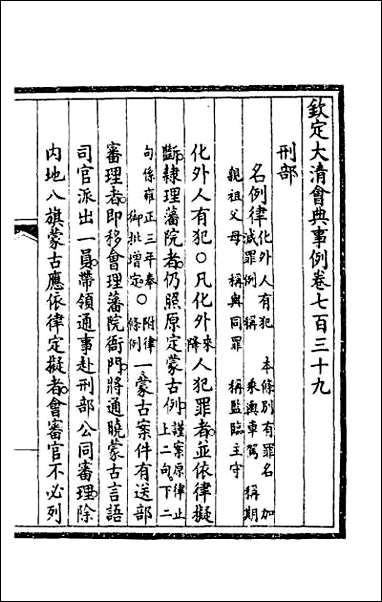 欽定大清會典事例卷七百三十九
刑部
名例律 化外人有犯 本條別有罪名 加
減罪例 稱乘輿車駕 稱期
親祖父母 稱與同罪 稱監臨主守
化外人有犯○凡化外來降人犯罪者並依律擬
斷隸理藩院者仍照原定蒙古例 謹案原律止上二句下二
句係雍正三年奉御批增定○附律條例一蒙古案件有送部
審理者即移會理藩院衙門將通曉蒙古言語
司官派出一員帶領通事赴刑部公同審理除
內地八旗蒙古應依律定擬者會審官不必列